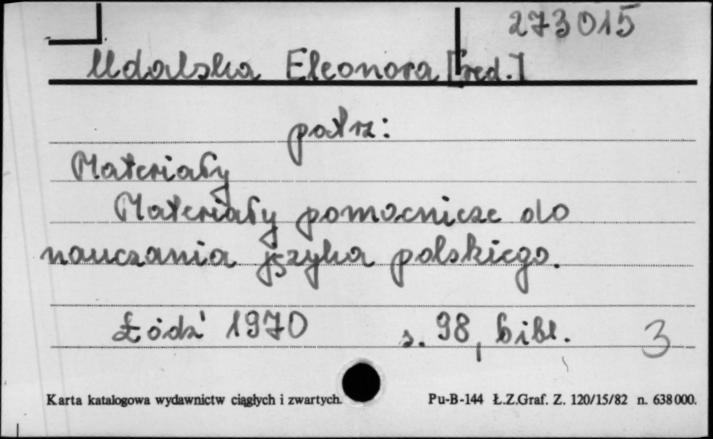 273015
Udalska Eleonora [red.]
patrz:
Materiały
Materiały pomocnicze do
nauczania języka polskiego.
Łódź 1970 s. 98, bibl.
3
Karta katalogowa wydawnictw ciągłych i zwartych. Pu-B-144 Ł.Z.Graf. Z. 120/15/82 n. 638000.